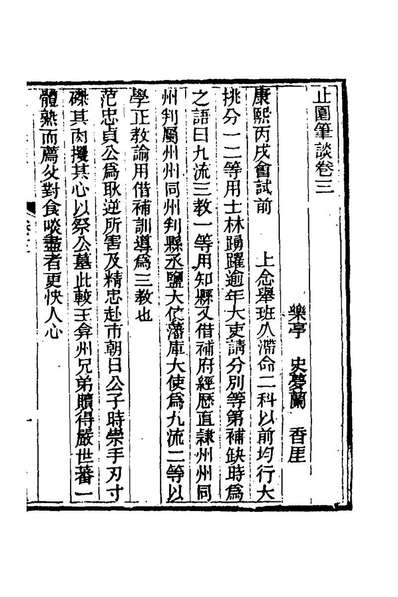 止園筆談卷三
樂亭 史夢蘭 香厓
康熙丙戌會試前 上念舉班久滯命二科以前均行大
挑分一二等用士林踴躍逾年大吏請分別等第補缺時爲
之語曰九流三教一等用知縣又借補府經歷直隸州州同
州判屬州州同州判縣丞鹽大使藩庫大使爲九流二等以
學正教諭用借補訓導爲三教也
范忠貞公爲耿逆所害及精忠赴市朝日公子時崇手刃寸
磔其肉擭其心以祭公墓此較王弇州兄弟贖得嚴世蕃一
體熟而薦父對食啖盡者更快人心